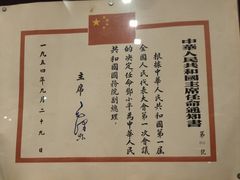 中華人民共和國主席任命通知書
第 號
根據中華人民共和國第一屆
全國人民代表大會第一次會議
的決定任命鄧小平為中華人民
共和國國務院副總理。
主席 毛澤東
一九五四年九月二十九日